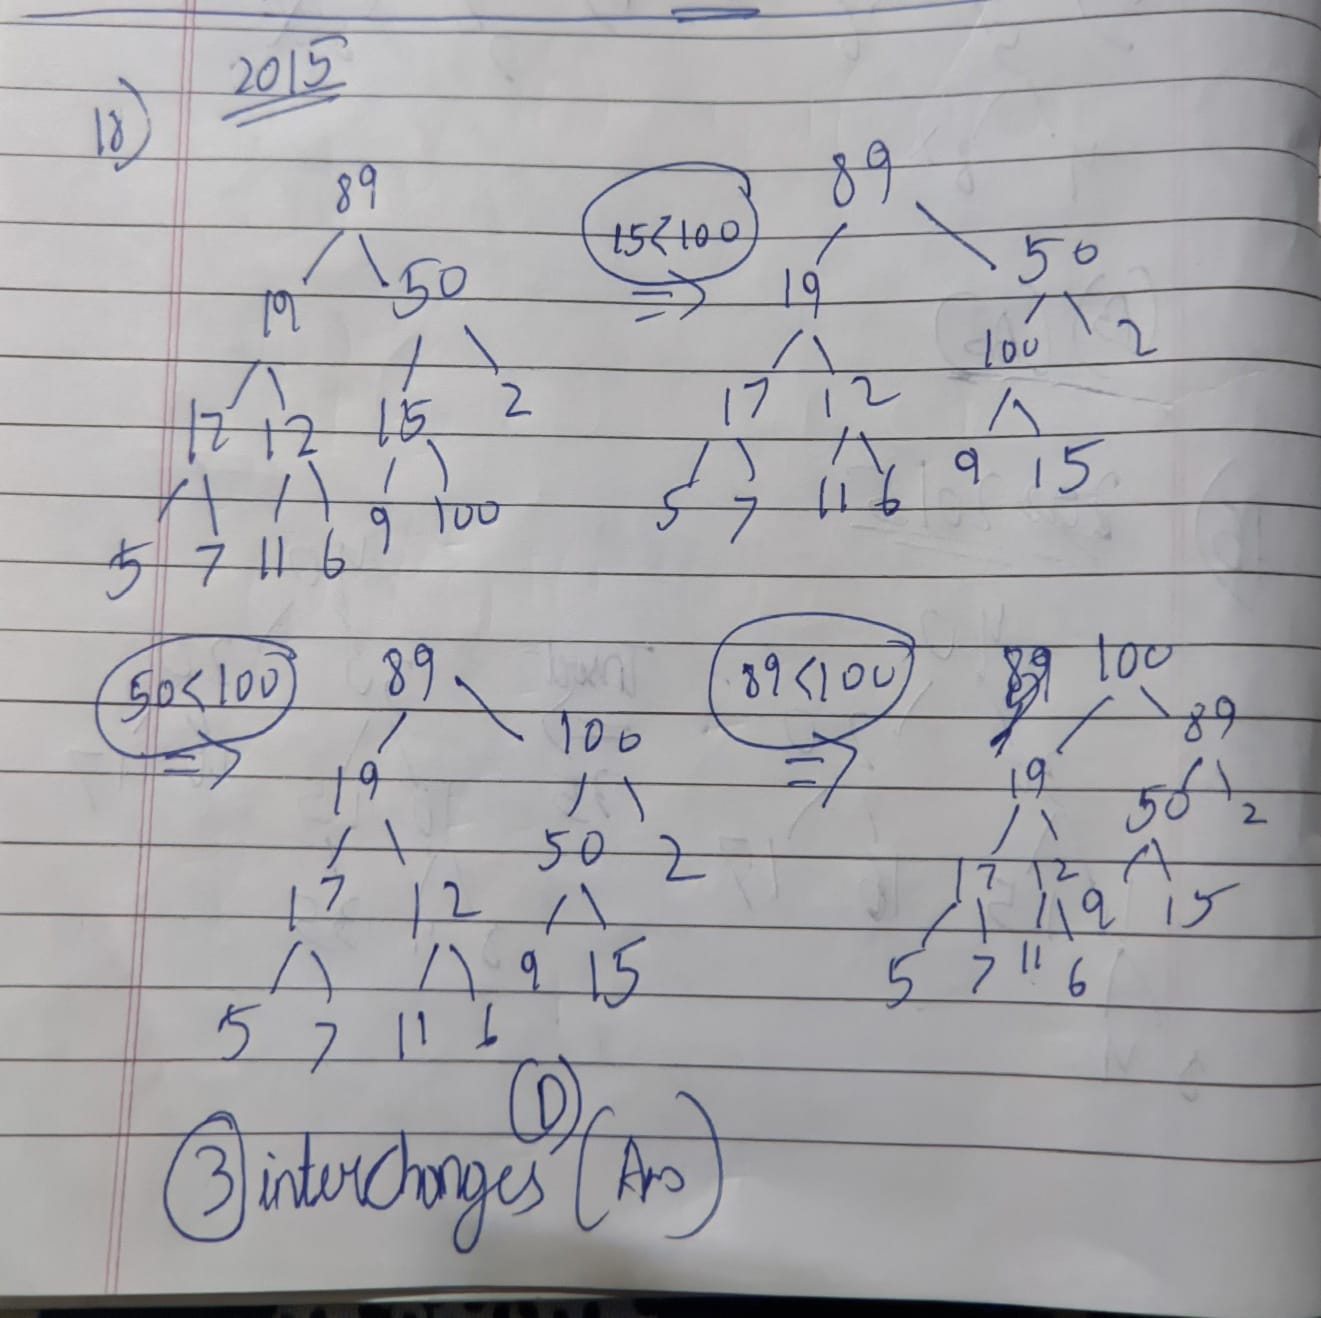 2015
18)
89
19 50
17 12 15 2
5 7 11 6 9 100
15<100
⇒
89
19 50
17 12 100 2
5 7 11 6 9 15
50<100
⇒
89
19 100
17 12 50 2
5 7 11 6 9 15
89<100
⇒
100
19 89
17 12 50 2
5 7 11 6 9 15
D
3 interchanges (Ans)